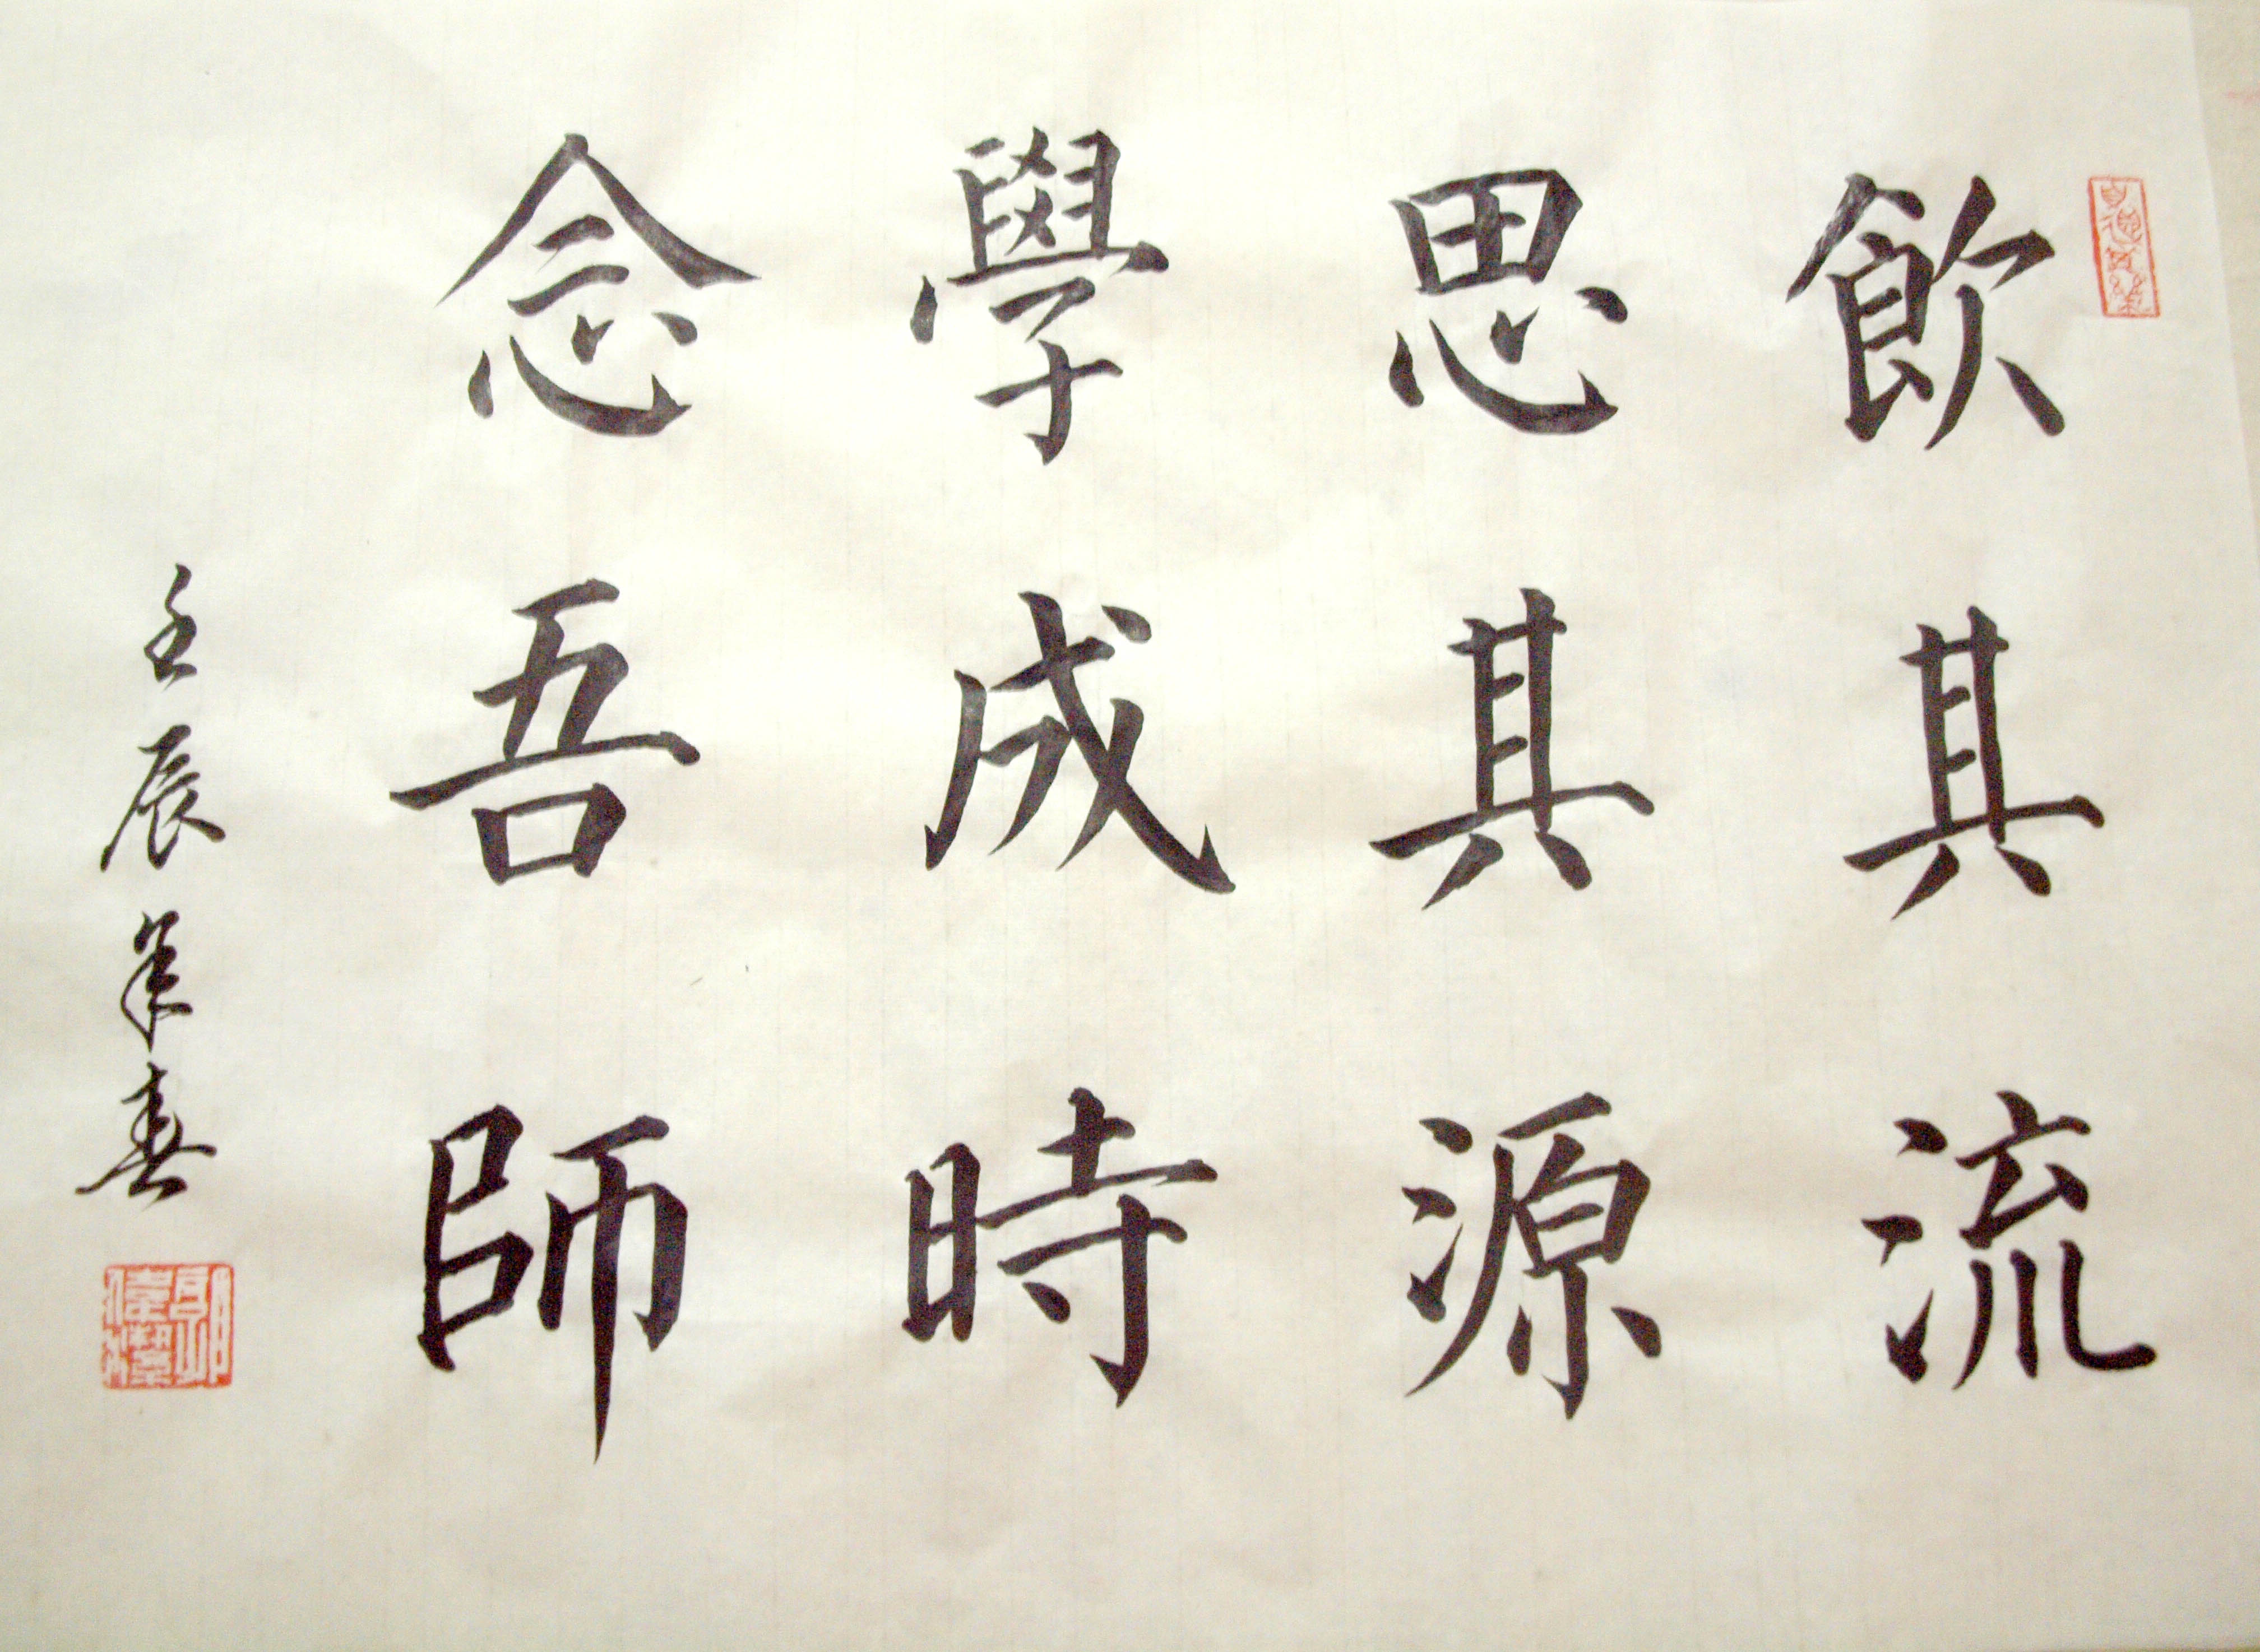 飲其流
思其源
學成時
念吾師
壬辰年春